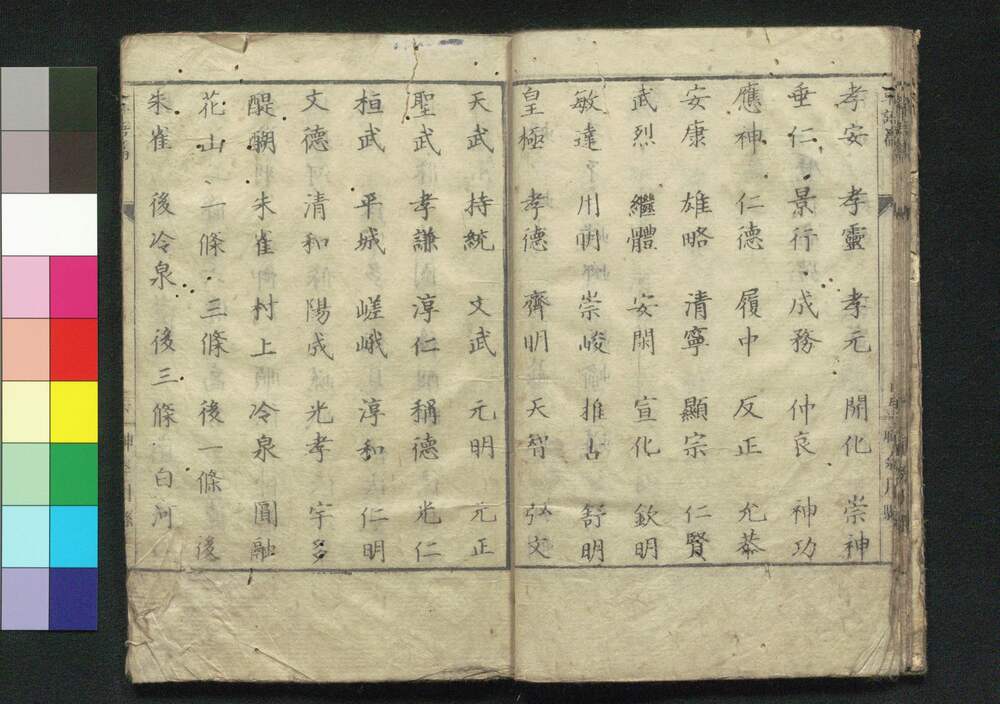 孝安 孝靈 孝元 開化 崇神
垂仁 景行 成務 仲哀 神功
應神 仁德 履中 反正 允恭
安康 雄略 清寧 顯宗 仁賢
武烈 繼體 安閑 宣化 欽明
敏達 用明 崇峻 推古 舒明
皇極 孝德 齊明 天智 弘文
天武 持統 文武 元明 元正
聖武 孝謙 淳仁 稱德 光仁
桓武 平城 嵯峨 淳和 仁明
文德 清和 陽成 光孝 宇多
醍醐 朱雀 村上 冷泉 圓融
花山 一條 三條 後一條 後
朱雀 後冷泉 後三條 白河